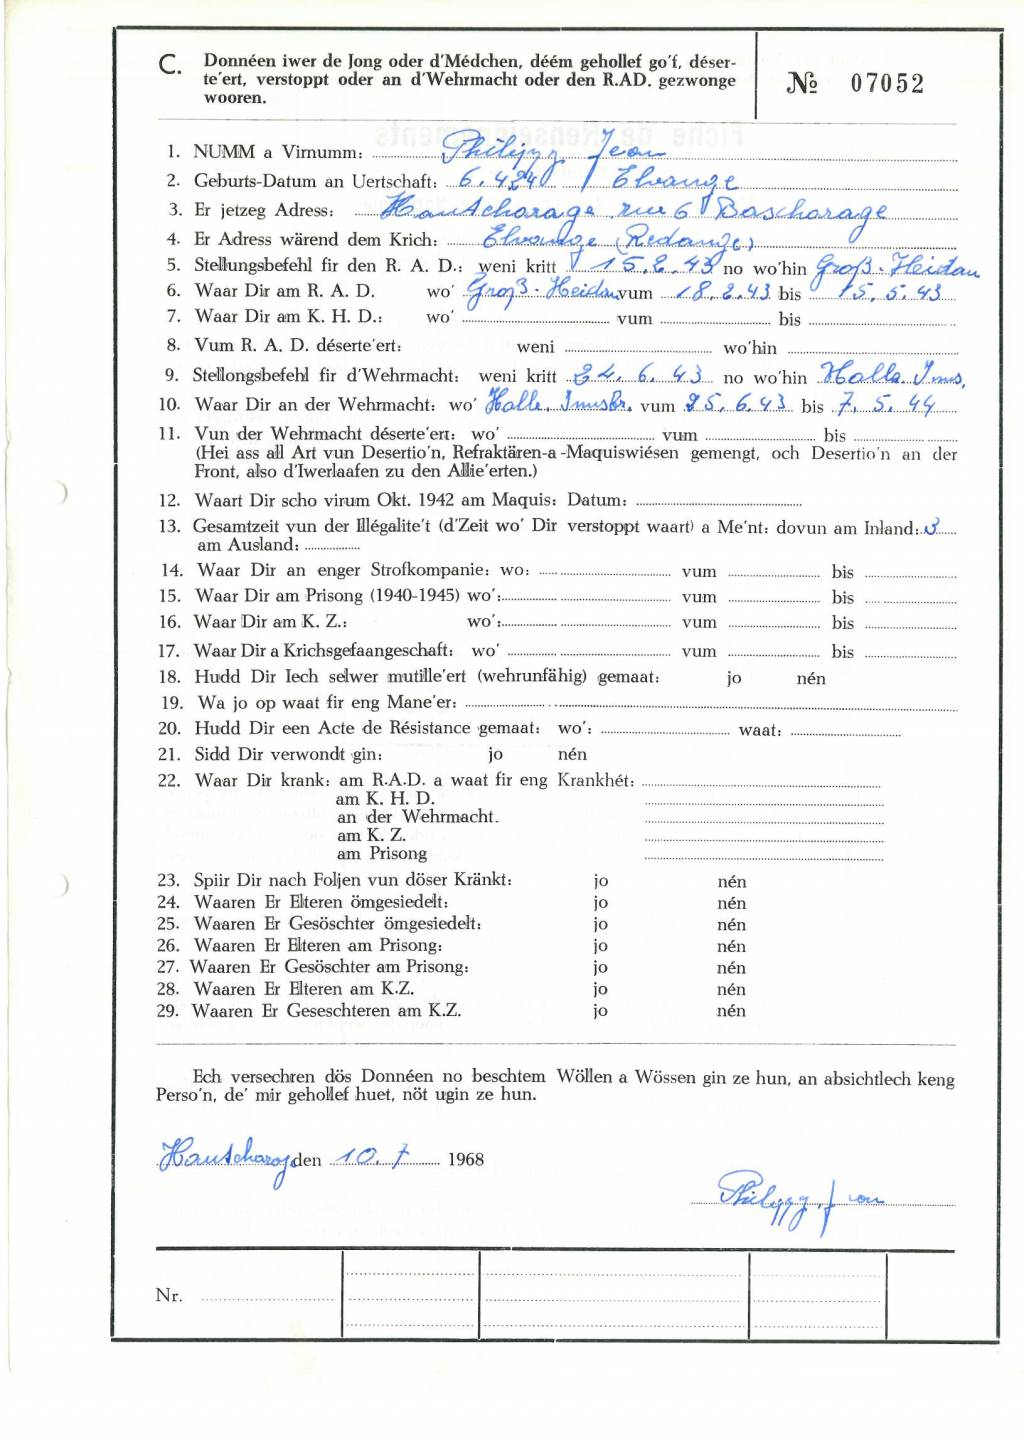 C. Donnéen iwer de Jong oder d'Médchen, déém gehollef go'f, déser-
te'ert, verstoppt oder an d'Wehrmacht oder den R.AD. gezwonge
wooren.
№ 07052
1. NUMM a Virnumm: Philippy Jean
2. Geburts-Datum an Uertschaft: 6.4.24 Elvange
3. Er jetzeg Adress: Hautcharage rue 6 Bascharage
4. Er Adress wärend dem Krich: Elvange (Redange)
5. Stellungsbefehl fir den R. A. D.: weni kritt 15.2.43 no wo'hin Groß-Heidau
6. Waar Dir am R. A. D. wo' Groß-Heidau vum 18.2.43 bis 15.5.43
7. Waar Dir am K. H. D.: wo' vum bis
8. Vum R. A. D. déserte'ert: weni wo'hin
9. Stellongsbefehl fir d'Wehrmacht: weni kritt 24.6.43 no wo'hin Halle. Inns.
10. Waar Dir an der Wehrmacht: wo' Halle, Innsbr. vum 25.6.43 bis 7.5.44
11. Vun der Wehrmacht déserte'ert: wo' vum bis
(Hei ass all Art vun Desertio'n, Refraktären-a-Maquiswiésen gemengt, och Desertio'n an der
Front, also d'Iwerlaafen zu den Allie'erten.)
12. Waart Dir scho virum Okt. 1942 am Maquis: Datum:
13. Gesamtzeit vun der Illégalite't (d'Zeit wo' Dir verstoppt waart) a Me'nt: dovun am Inland: 3
am Ausland:
14. Waar Dir an enger Strofkompanie: wo: vum bis
15. Waar Dir am Prisong (1940-1945) wo': vum bis
16. Waar Dir am K. Z.: wo': vum bis
17. Waar Dir a Krichsgefaangeschaft: wo' vum bis
18. Hudd Dir Iech selwer mutille'ert (wehrunfähig) gemaat: jo nén
19. Wa jo op waat fir eng Mane'er:
20. Hudd Dir een Acte de Résistance gemaat: wo': waat:
21. Sidd Dir verwondt gin: jo nén
22. Waar Dir krank: am R.A.D. a waat fir eng Krankhét:
am K. H. D.
an der Wehrmacht.
am K. Z.
am Prisong
23. Spiir Dir nach Foljen vun döser Kränkt: jo nén
24. Waaren Er Elteren ömgesiedelt: jo nén
25. Waaren Er Gesöschter ömgesiedelt: jo nén
26. Waaren Er Elteren am Prisong: jo nén
27. Waaren Er Gesöschter am Prisong: jo nén
28. Waaren Er Elteren am K.Z. jo nén
29. Waaren Er Geseschteren am K.Z. jo nén
Ech versechren dös Donnéen no beschtem Wöllen a Wössen gin ze hun, an absichtlech keng
Perso'n, de' mir gehollef huet, nöt ugin ze hun.
Hautcharage den 10.7 1968
Philippy Jean
Nr.